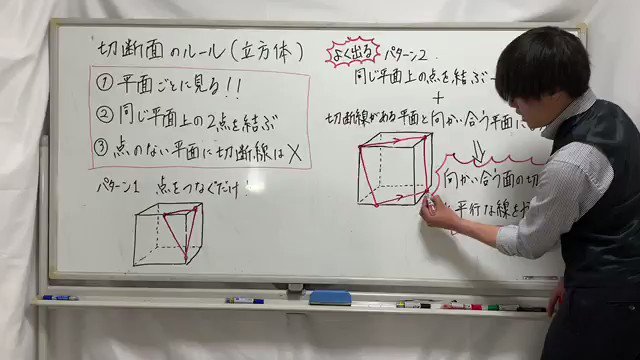 切断面のルール(立方体)
① 平面ごとに見る!!
② 同じ平面上の2点を結ぶ
③ 点のない平面に切断線は✕
パターン1 点をつなぐだけ!
よく出る パターン2.
同じ平面上の点を結ぶ
+
切断線がある平面と向かい合う平面に
向かい合う面の切
平行な線を